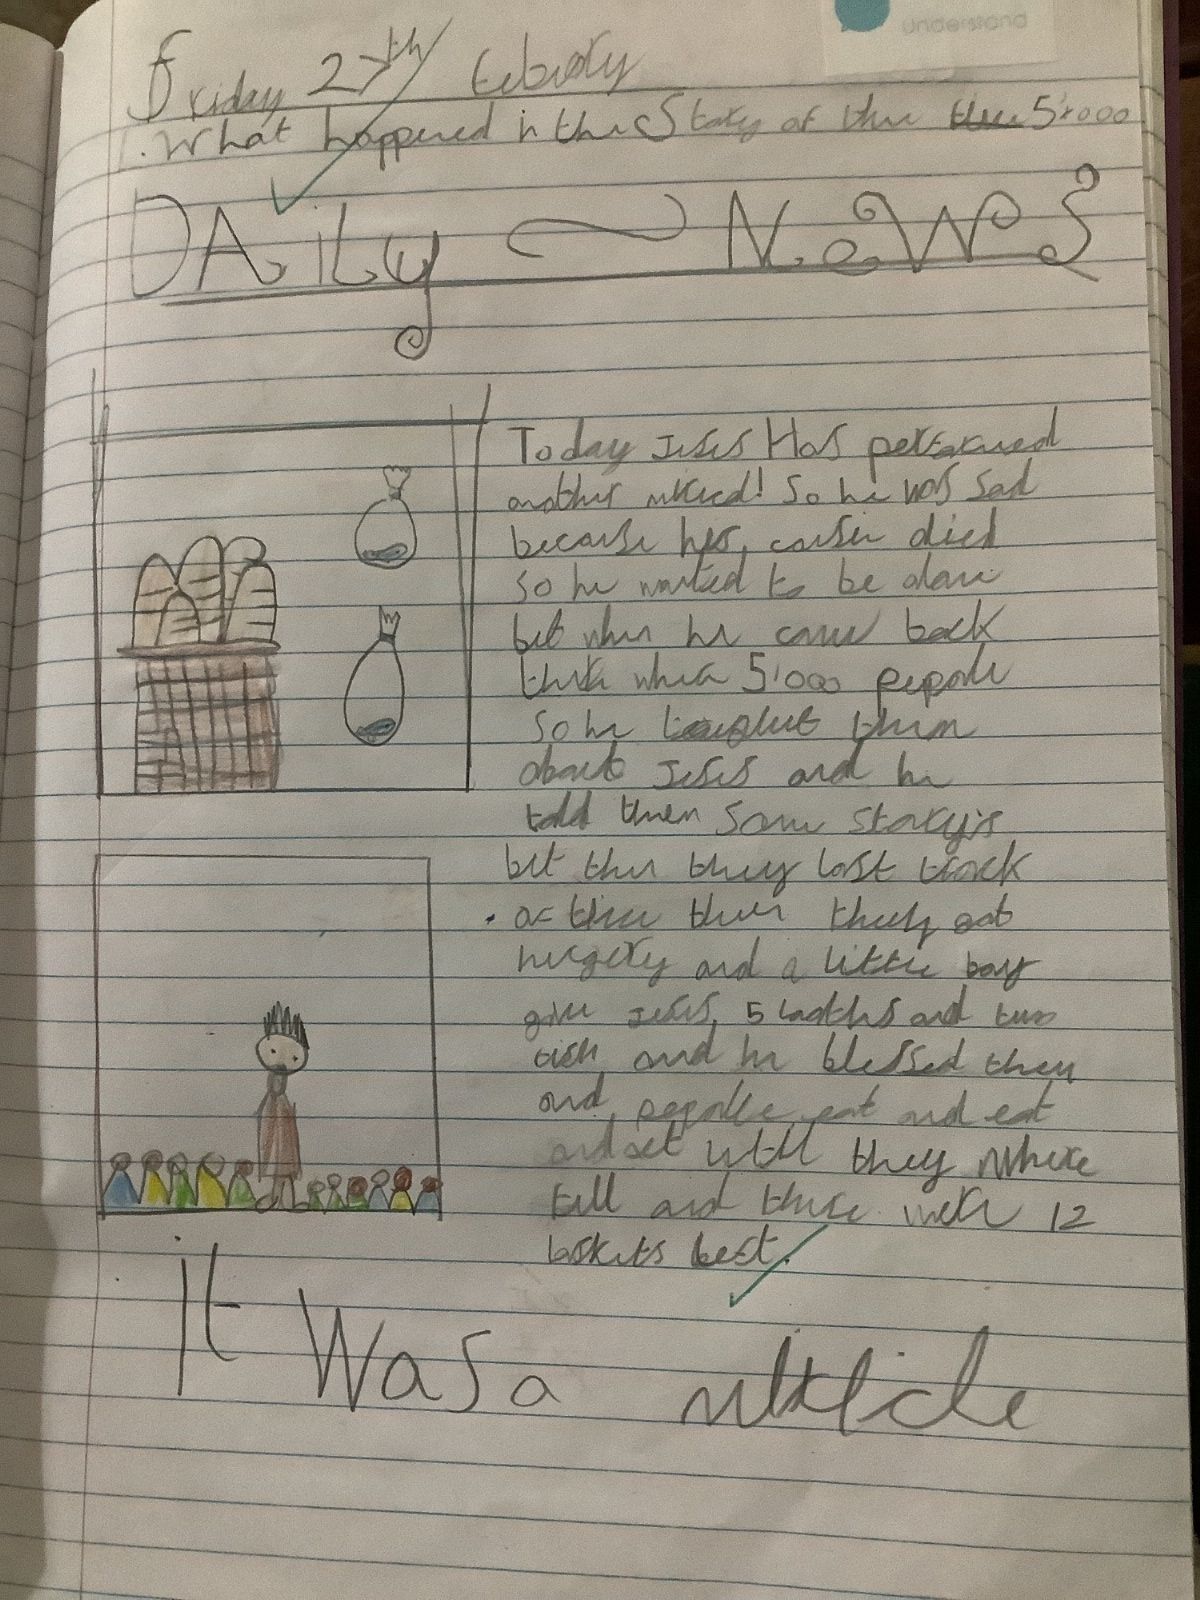 Understand
Friday 27th febuary
1. What happened in the Story of the the 5'000
DAiLy ~ NeWS
Today Jesus Has performed
another miricd! So he was sad
because his cousin died
so he wanted to be alone
but when he came back
there when 5'000 pepole
so he taught them
about Jesus and he
told them some storyis
but then they lost track
of time then they got
hungery and a little boy
give Jesus 5 loaths and two
fish and he blessed them
and pepole eat and eat
and eat until they where
full and there were 12
baskets left.
it Was a